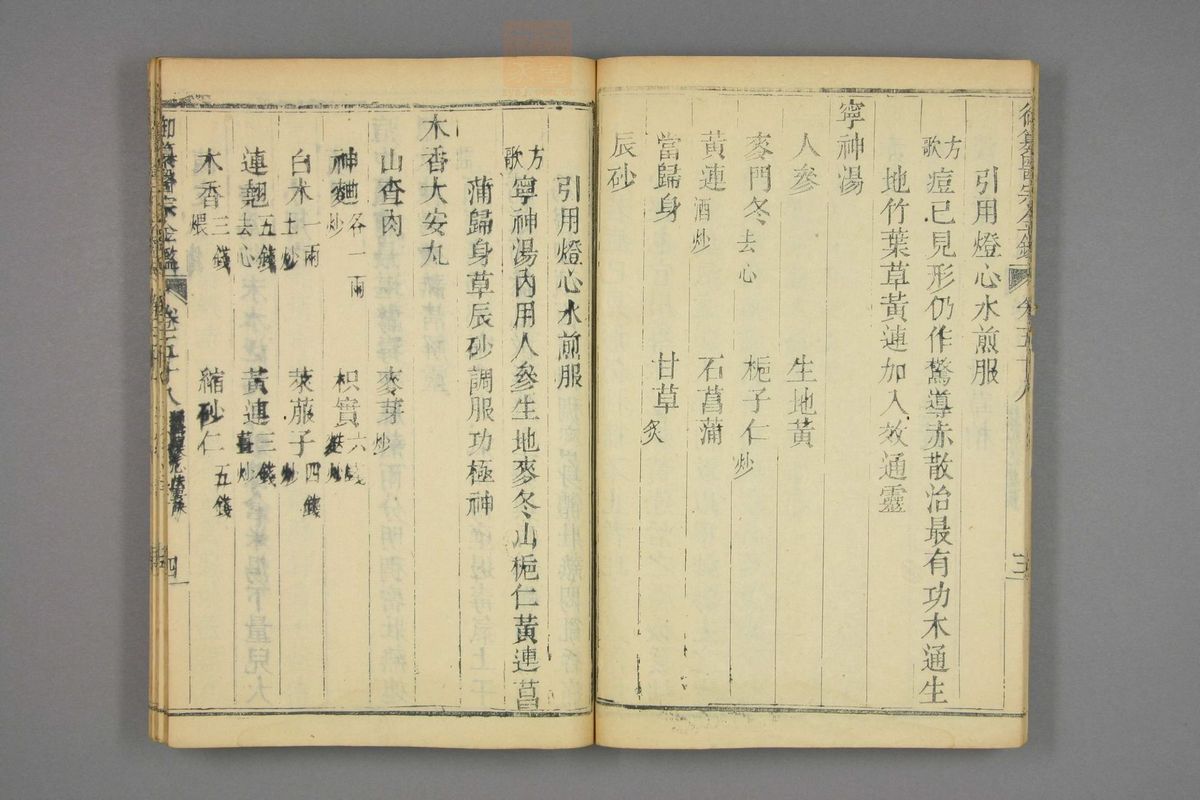 御纂醫宗金鑑 卷五十八 三
引用燈心水煎服
方歌 痘已見形仍作驚導赤散治最有功木通生
地竹葉草黃連加入效通靈
寧神湯
人參 生地黃
麥門冬去心 梔子仁炒
黃連酒炒 石菖蒲
當歸身 甘草炙
辰砂
引用燈心水煎服
方歌 寧神湯內用人參生地麥冬山梔仁黃連菖
蒲歸身草辰砂調服功極神
木香大安丸
山查肉 麥芽炒
神麯炒各一兩 枳實六錢麩炒
白朮一兩土炒 萊菔子四錢炒
連翹五錢去心 黃連三錢薑炒
木香三錢煨 縮砂仁五錢
御纂醫宗金鑑 卷五十八 四